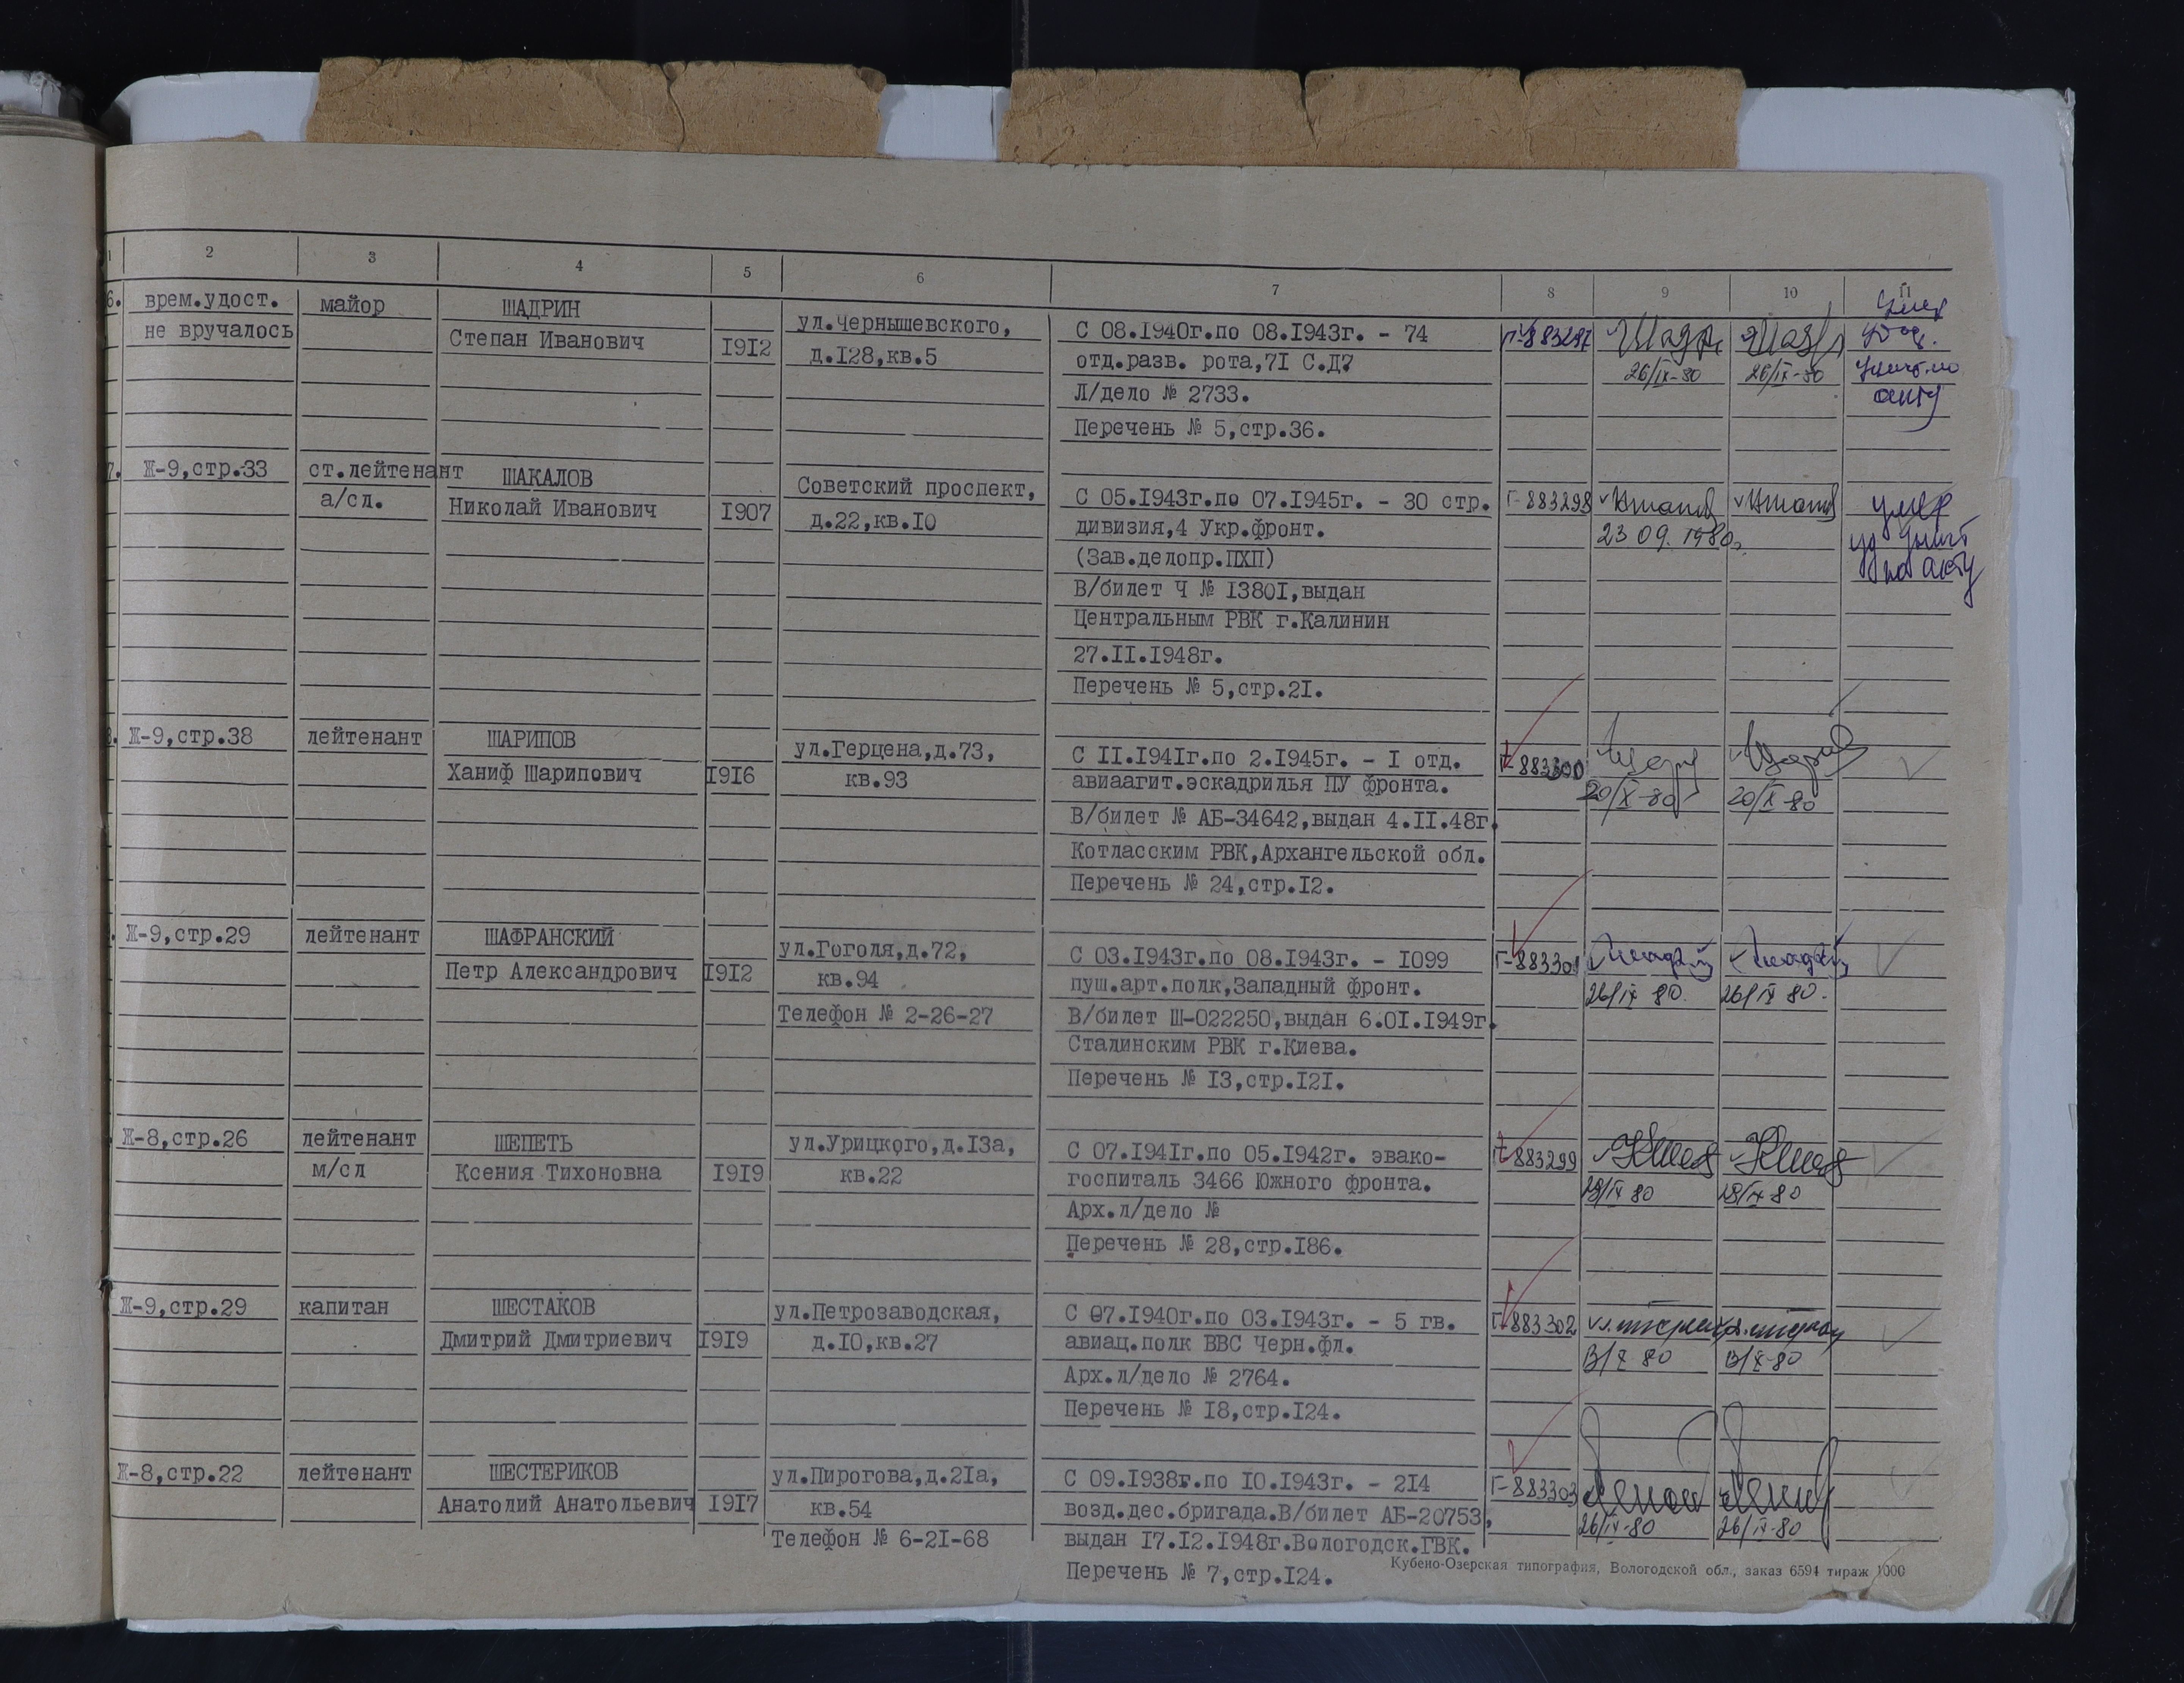 1 2 3 4 5 6 7 8 9 10 11
6. врем.удост. майор ШАДРИН ул.Чернышевского, С 08.1940г.по 08.1943г. - 74 Г-883297 умер
не вручалось Степан Иванович 1912 д.128,кв.5 отд.разв. рота,71 С.Д? 26/IX-80 26/IX-80
Л/дело № 2733. акту
Перечень № 5,стр.36.
7. Ж-9,стр.33 ст.лейтенант ШАКАЛОВ Советский проспект, С 05.1943г.по 07.1945г. - 30 стр. Г-883298 умер
а/сл. Николай Иванович 1907 д.22,кв.10 дивизия,4 Укр.фронт. 23 09. 1980г. уд уничт
(Зав.делопр.ПХП) по акту
В/билет Ч № 13801,выдан
Центральным РВК г.Калинин
27.II.1948г.
Перечень № 5,стр.21.
8. Ж-9,стр.38 лейтенант ШАРИПОВ ул.Герцена,д.73, С II.1941г.по 2.1945г. - I отд. Г-883300
Ханиф Шарипович 1916 кв.93 авиаагит.эскадрилья ПУ фронта. 20/X-80 20/X-80
В/билет № АБ-34642,выдан 4.II.48г.
Котласским РВК,Архангельской обл.
Перечень № 24,стр.12.
Ж-9,стр.29 лейтенант ШАФРАНСКИЙ ул.Гоголя,д.72, С 03.1943г.по 08.1943г. - 1099 Г-883301
Петр Александрович 1912 кв.94 пуш.арт.полк,Западный фронт. 26/IX 80. 26/IX 80.
Телефон № 2-26-27 В/билет Ш-022250,выдан 6.01.1949г.
Сталинским РВК г.Киева.
Перечень № 13,стр.121.
Ж-8,стр.26 лейтенант ШЕПЕТЬ ул.Урицкого,д.13а, С 07.1941г.по 05.1942г. эвако- Г-883299
м/сл Ксения Тихоновна 1919 кв.22 госпиталь 3466 Южного фронта. 18/IX 80 18/IX 80
Арх.л/дело №
Перечень № 28,стр.186.
Ж-9,стр.29 капитан ШЕСТАКОВ ул.Петрозаводская, С 07.1940г.по 03.1943г. - 5 гв. Г-883302
Дмитрий Дмитриевич 1919 д.10,кв.27 авиац.полк ВВС Черн.фл. 13/X-80 13/X-80
Арх.л/дело № 2764.
Перечень № 18,стр.124.
Ж-8,стр.22 лейтенант ШЕСТЕРИКОВ ул.Пирогова,д.21а, С 09.1938г.по 10.1943г. - 214 Г-883303
Анатолий Анатольевич 1917 кв.54 возд.дес.бригада.В/билет АБ-20753, 26/IX-80 26/IX-80
Телефон № 6-21-68 выдан 17.12.1948г.Вологодск.ГВК.
Перечень № 7,стр.124.
Кубено-Озерская типография, Вологодской обл., заказ 6594 тираж 1000